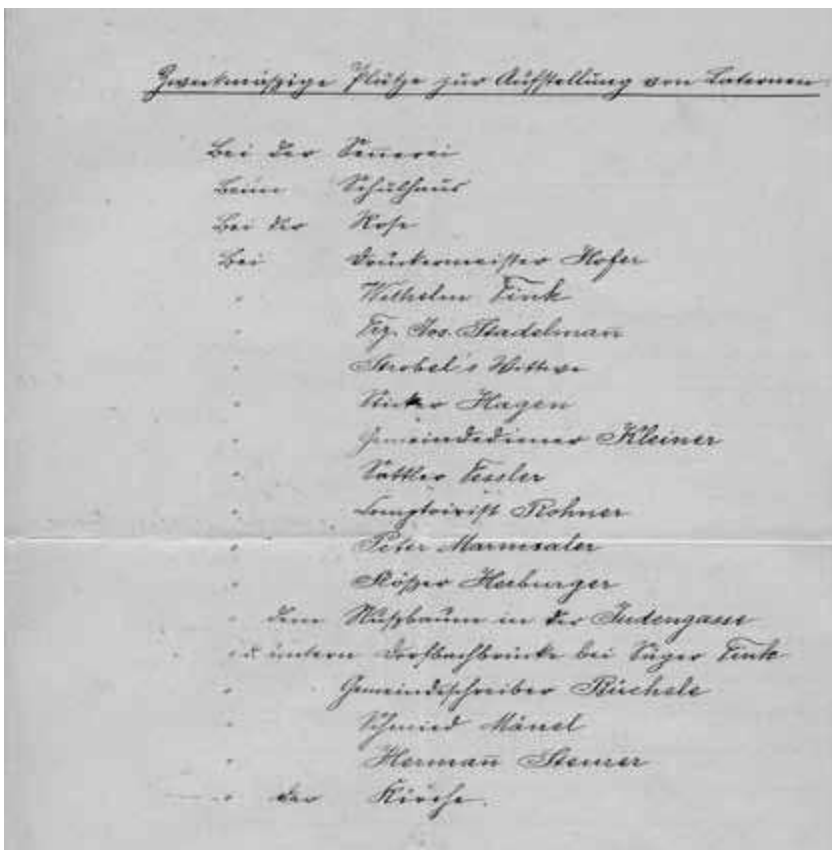 Zweckmässige Plätze zur Aufstellung von Laternen.
Bei der Señerei
Beim Schulhaus
Bei der Rose
Bei Druckermeister Hofer
" Wilhelm Fink
" Frz. Jos. Stadelmañ
" Strobel's Wittwe
" Sticker Hagen
" Gemeindediener Kleiner
" Sattler Fessler
" Comptoirist Rohner
" Peter Marmsaler
" Rößer Herburger
" dem Nußbaum in der Judengasse
" d. untern Dorfbachbrücke bei Säger Fink
" Gemeindeschreiber Büchele
" Schmied Mänel
" Hermañ Steurer
" der Kirche.